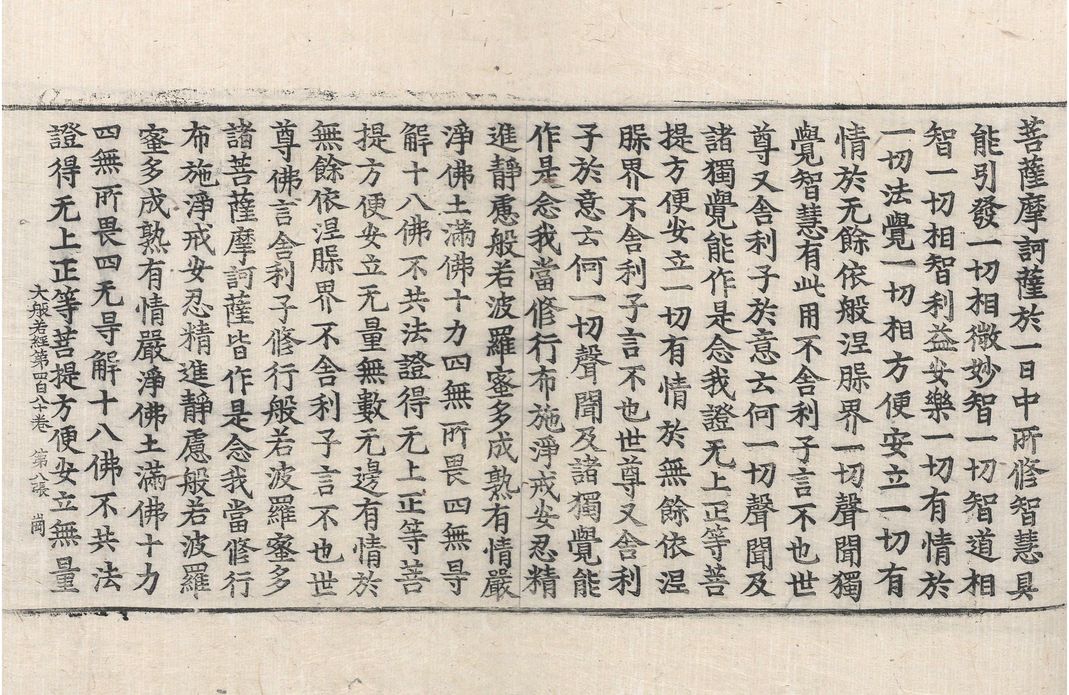 菩薩摩訶薩於一日中所修智慧具
能引發一切相微妙智一切智道相
智一切相智利益安樂一切有情於
一切法覺一切相方便安立一切有
情於无餘依般涅槃界一切聲聞獨
覺智慧有此用不舍利子言不也世
尊又舍利子於意云何一切聲聞及
諸獨覺能作是念我證无上正等菩
提方便安立一切有情於無餘依涅
槃界不舍利子言不也世尊又舍利
子於意云何一切聲聞及諸獨覺能
作是念我當修行布施淨戒安忍精
進靜慮般若波羅蜜多成熟有情嚴
淨佛土滿佛十力四無所畏四無㝵
解十八佛不共法證得无上正等菩
提方便安立无量無數无邊有情於
無餘依涅槃界不舍利子言不也世
尊佛言舍利子修行般若波羅蜜多
諸菩薩摩訶薩皆作是念我當修行
布施淨戒安忍精進靜慮般若波羅
蜜多成熟有情嚴淨佛土滿佛十力
四無所畏四无㝵解十八佛不共法
證得无上正等菩提方便安立無量
大般若經第四百八十卷 第八張 崗